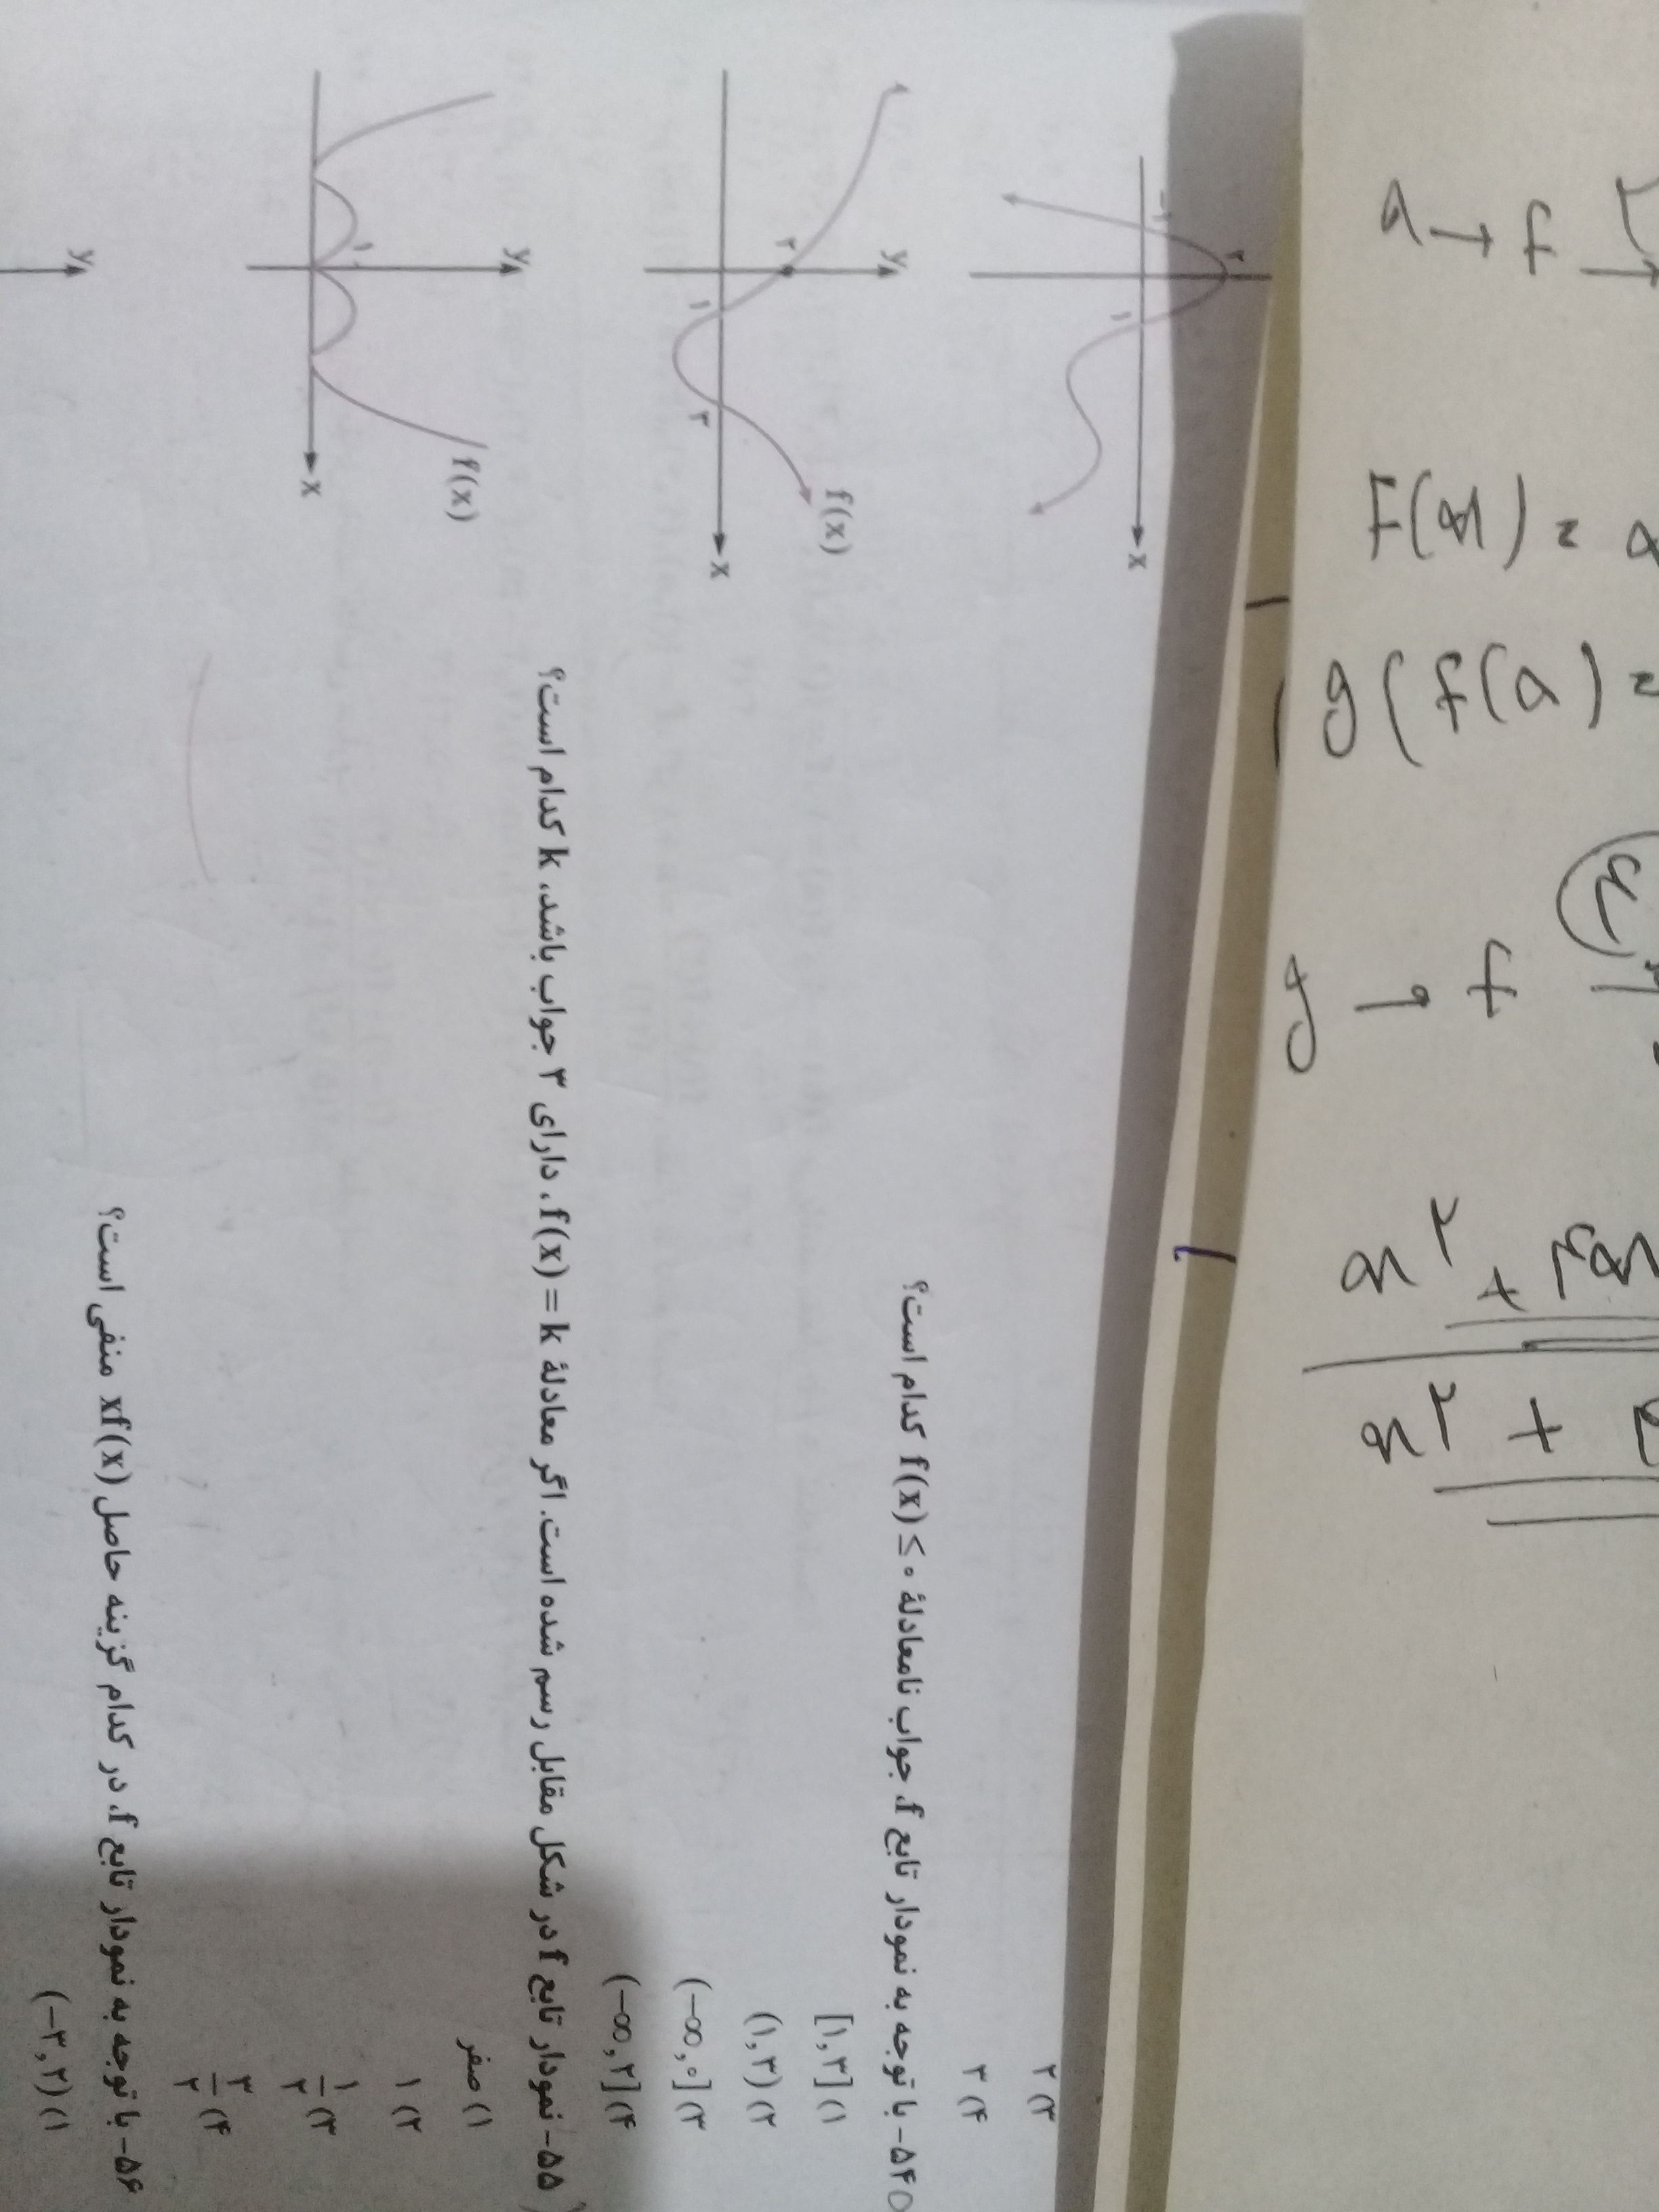 ۳) ۲
۴) ۳
۵۴- با توجه به نمودار تابع f، جواب نامعادلهٔ f(x) ≤ ۰ کدام است؟
۱) [۱,۳]
۲) (۱,۳)
۳) (−∞,۰]
۴) (−∞,۲]
۵۵- نمودار تابع f در شکل مقابل رسم شده است. اگر معادلهٔ f(x) = k، دارای ۳ جواب باشد، k کدام است؟
۱) صفر
۲) ۱
۳) ۱/۲
۴) ۳/۲
۵۶- با توجه به نمودار تابع f، در کدام گزینه حاصل xf(x) منفی است؟
۱) (−۳,۲)
۲
−۱
۱
x
y
۲
۱
۳
f(x)
x
y
۱
f(x)
x
y
F(x) =
g(f(a) =